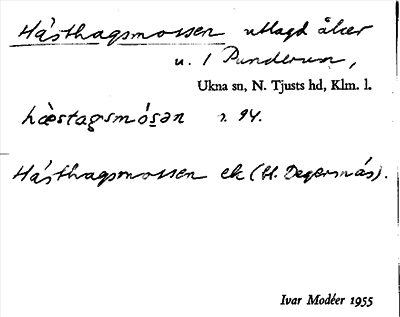 Hästhagsmossen utlagd åker
u. 1 Punderum,
Ukna sn, N. Tjusts hd, Klm. l.
hæ̀stagsmó̱sən r. 94.
Hästhagsmossen ek (St. Degersnäs).
Ivar Modéer 1955